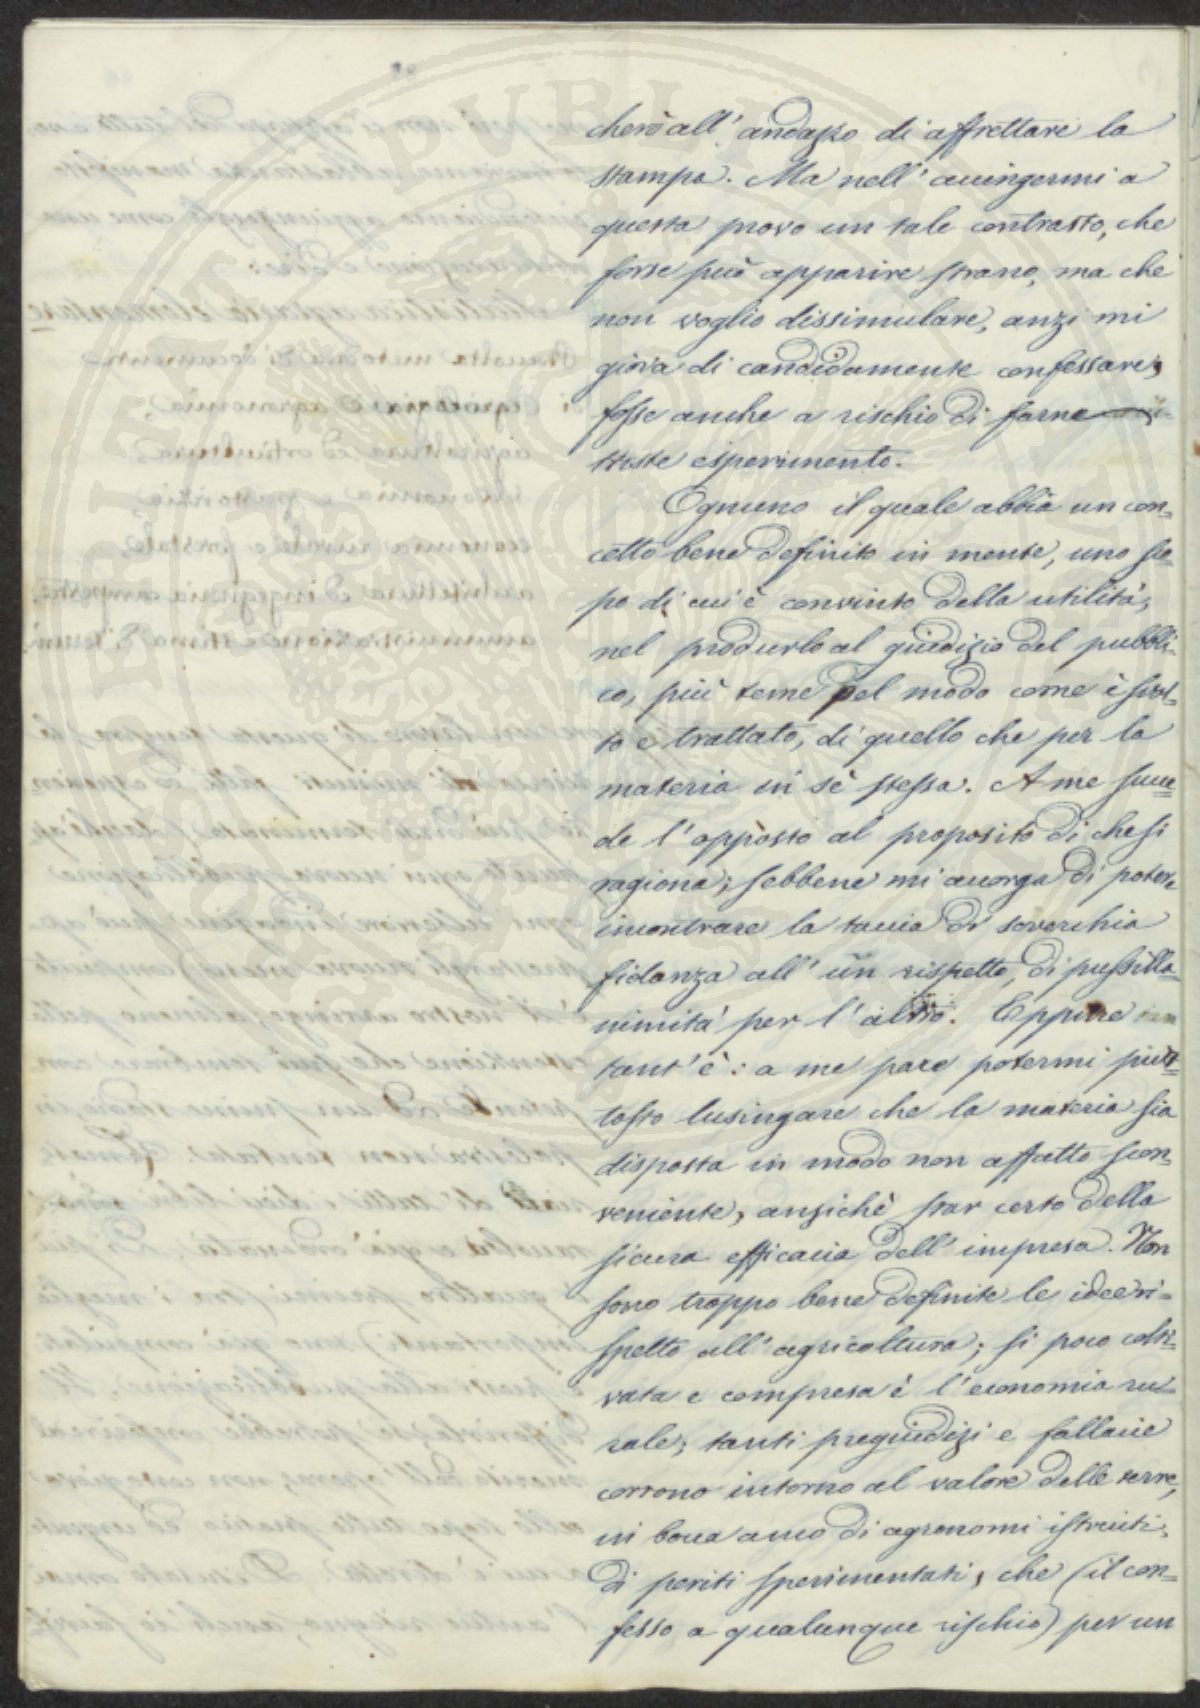 cherò all' andazzo di affrettare la
stampa. Ma nell' accingermi a
questa provo un tale contrasto, che
forse può apparire strano, ma che
non voglio dissimulare, anzi mi
giova di candidamente confessare,
fosse anche a rischio di farne
triste esperimento.
Ognuno il quale abbia un con=
cetto bene definito in mente, uno sco=
po di cui è convinto della utilità,
nel produrlo al giudizio del pubbli=
co, più teme pel modo come è svol=
to e trattato, di quello che per la
materia in sè stessa. A me succe=
de l'opposto al proposito di che si
ragiona; sebbene mi accorga di potere
incontrare la taccia di soverchia
fidanza all' un rispetto, di pusilla=
nimità per l'altro. Eppure
tant' è: a me pare potermi piut=
tosto lusingare che la materia sia
disposta in modo non affatto scon=
veniente, anzichè star certo della
sicura efficacia dell' impresa. Non
sono troppo bene definite le idee ri=
spetto all' agricoltura; si poco colti=
vata e compresa è l'economia ru=
rale; tanti pregiudizi e fallacie
corrono intorno al valore delle terre,
in bocca anco di agronomi istruiti,
di periti sperimentati, che (il con=
fesso a qualunque rischio) per un